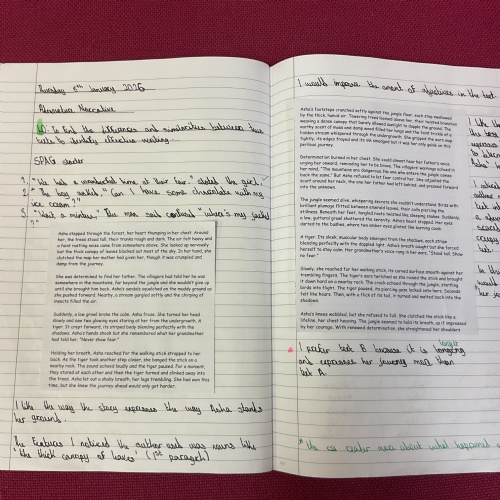 Thursday 8th January 2026
Alternative Narrative
LO: To find the differences and similarities between two
texts to identify effective writing.
SPAG starter
1. "We had a wonderful time at the fair." stated the girl.
2. The boy asked, "Can I have some chocolate with my
ice cream?"
3. "Wait a minute." The man said confused "where's my jacket
?"
Asha stepped through the forest, her heart thumping in her chest. Around
her, the trees stood tall, their trunks rough and dark. The air felt heavy and
a faint rustling noise came from somewhere above. She looked up nervously
but the thick canopy of leaves blocked out most of the sky. In her hand, she
clutched the map her mother had given her, though it was crumpled and
damp from the journey.
She was determined to find her father. The villagers had told her he was
somewhere in the mountains, far beyond the jungle and she wouldn't give up
until she brought him back. Asha's sandals squelched on the muddy ground as
she pushed forward. Nearby, a stream gurgled softly and the chirping of
insects filled the air.
Suddenly, a low growl broke the calm. Asha froze. She turned her head
slowly and saw two glowing eyes staring at her from the undergrowth. A
tiger. It crept forward, its striped body blending perfectly with the
shadows. Asha's hands shook but she remembered what her grandmother
had told her, "Never show fear."
Holding her breath, Asha reached for the walking stick strapped to her
back. As the tiger took another step closer, she banged the stick on a
nearby rock. The sound echoed loudly and the tiger paused. For a moment,
they stared at each other and then the tiger turned and slinked away into
the trees. Asha let out a shaky breath, her legs trembling. She had won this
time, but she knew the journey ahead would only get harder.
I like the way the story expresses the way Asha stands
her ground.
The features I noticed the author used was nouns like
'the thick canopy of leaves' (1st paragraph)
I would improve the amount of adjectives in the text
Asha's footsteps crunched softly against the jungle floor, each step swallowed
by the thick, humid air. Towering trees loomed above her, their twisted branches
weaving a dense canopy that barely allowed sunlight to dapple the ground. The
earthy scent of moss and damp wood filled her lungs and the faint trickle of a
hidden stream whispered through the undergrowth. She gripped the worn map
tightly, its edges frayed and its ink smudged but it was her only guide on this
perilous journey.
Determination burned in her chest. She could almost hear her father's voice
urging her onward, reminding her to be brave. The villagers' warnings echoed in
her mind, "The mountains are dangerous. No one who enters the jungle comes
back the same." But Asha refused to let fear control her. She adjusted the
scarf around her neck, the one her father had left behind, and pressed forward
into the unknown.
The jungle seemed alive, whispering secrets she couldn't understand. Birds with
brilliant plumage flitted between emerald leaves, their calls piercing the
stillness. Beneath her feet, tangled roots twisted like sleeping snakes. Suddenly,
a low, guttural growl shattered the serenity. Asha's heart stopped. Her eyes
darted to the bushes, where two amber eyes glinted like burning coals.
A tiger. Its sleek, muscular body emerged from the shadows, each stripe
blending perfectly with the dappled light. Asha's breath caught but she forced
herself to stay calm. Her grandmother's voice rang in her ears, "Stand tall. Show
no fear."
Slowly, she reached for her walking stick, its carved surface smooth against her
trembling fingers. The tiger's ears twitched as she raised the stick and brought
it down hard on a nearby rock. The crack echoed through the jungle, startling
birds into flight. The tiger paused, its piercing gaze locked onto hers. Seconds
felt like hours. Then, with a flick of its tail, it turned and melted back into the
shadows.
Asha's knees wobbled, but she refused to fall. She clutched the stick like a
lifeline, her chest heaving. The jungle seemed to hold its breath, as if impressed
by her courage. With renewed determination, she straightened her shoulders
I like the
I prefer text B because it is longing
longer
and expresses her journey more than
text A.
about what happened